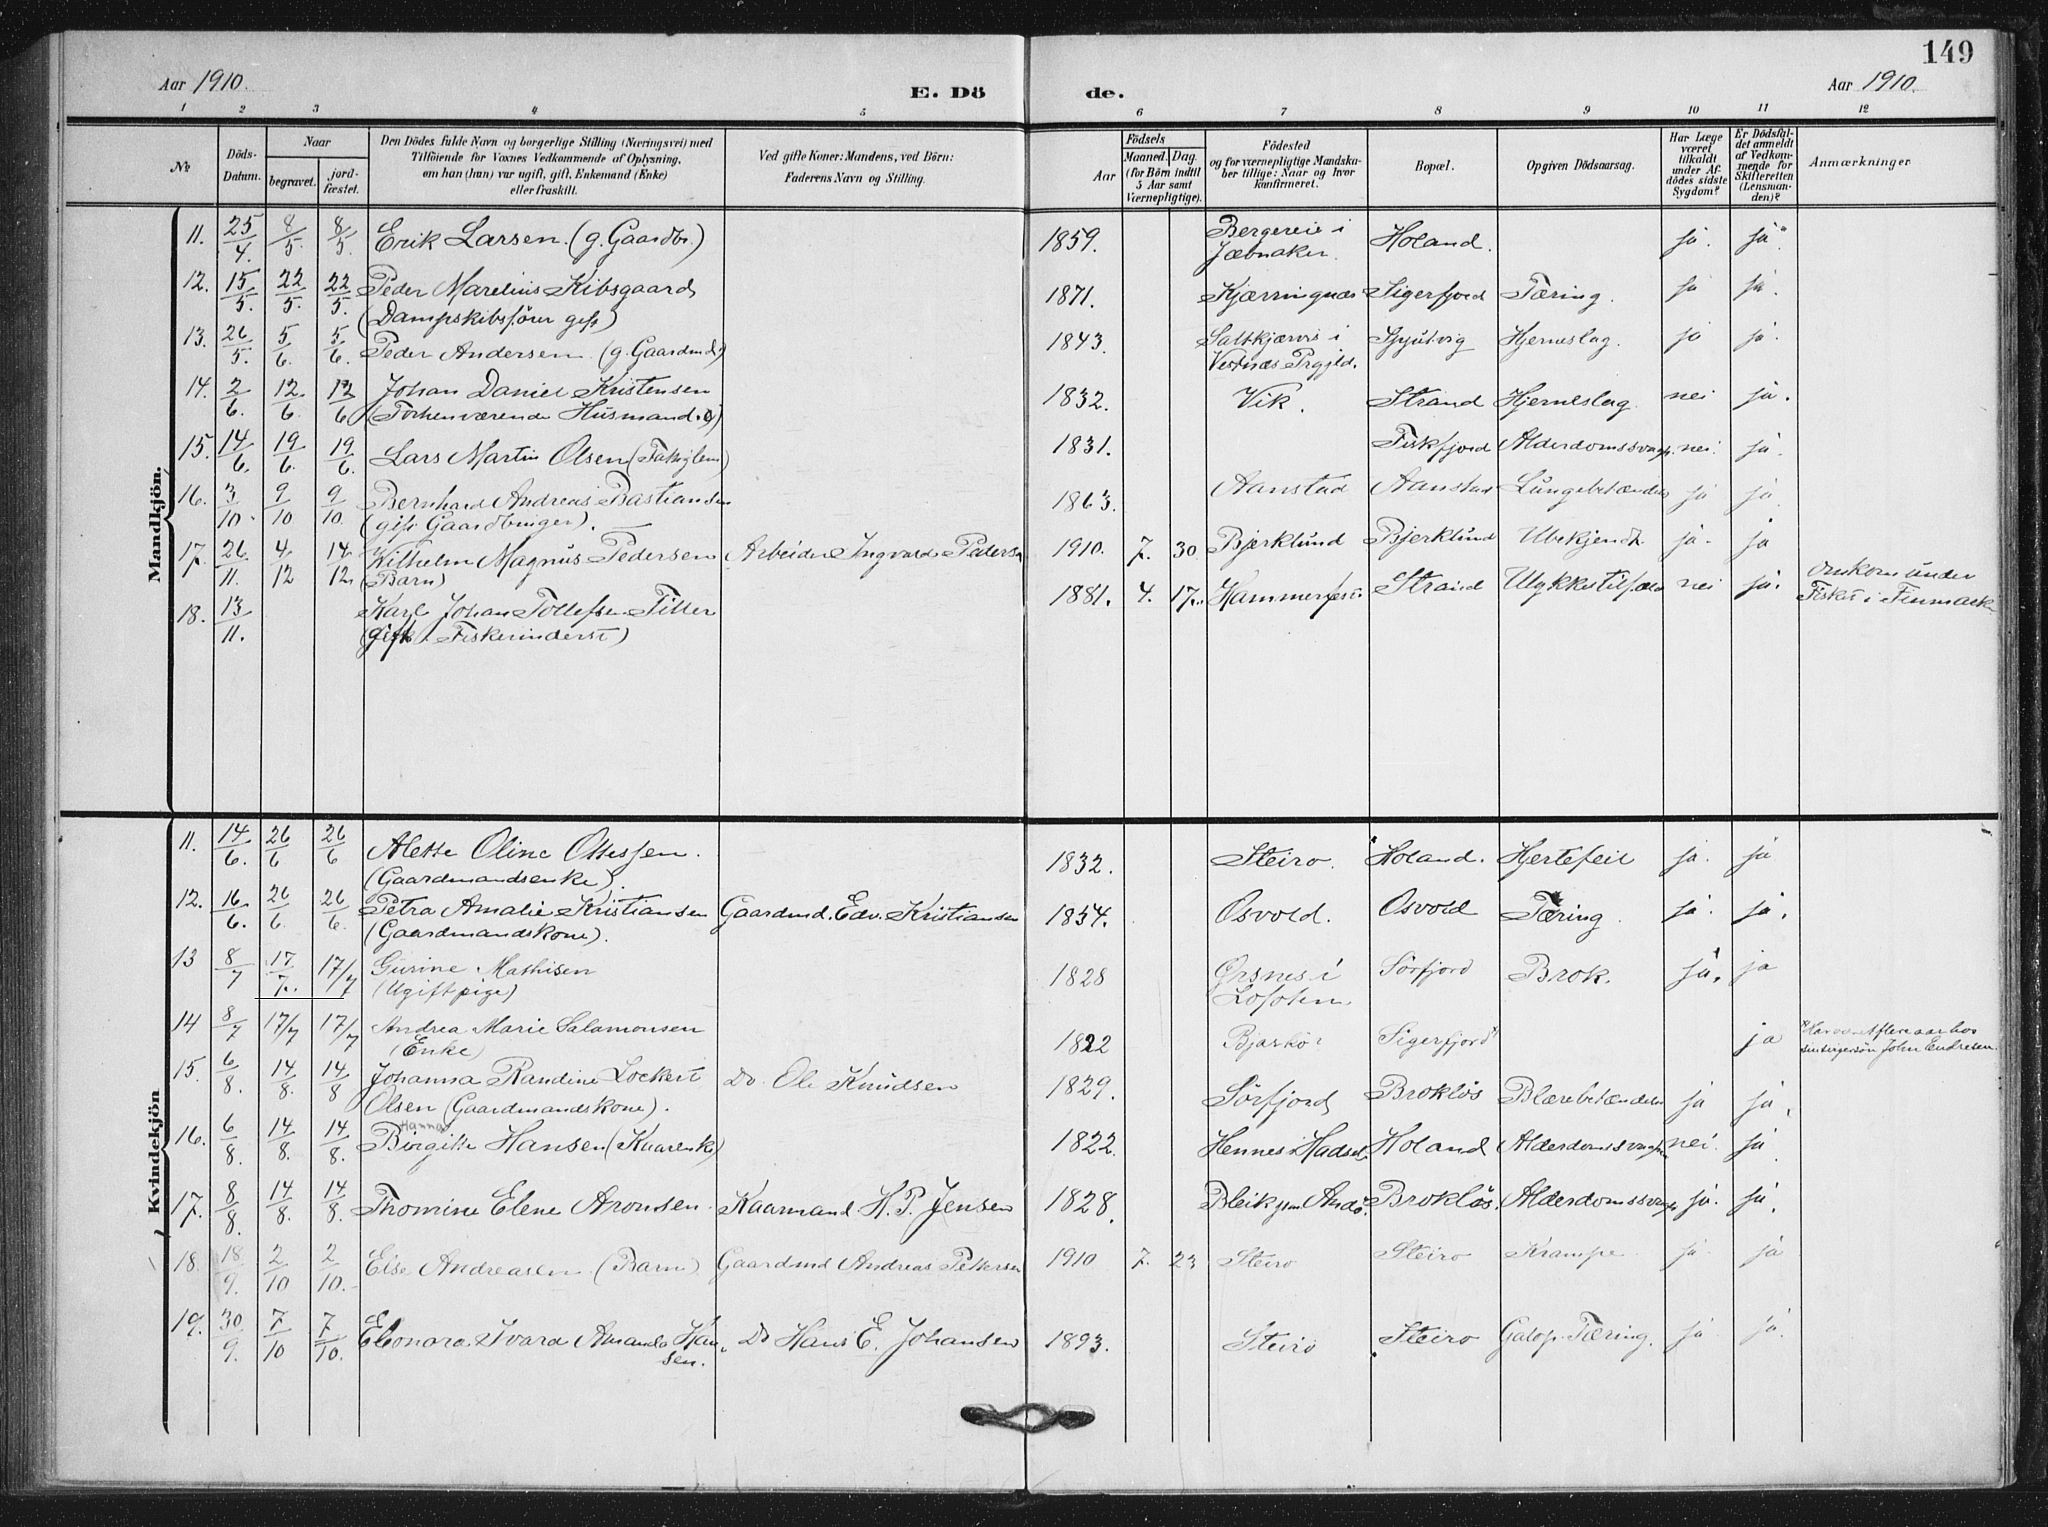 149
Aar 1910. E. Dö de. Aar 1910.
1 2 3 4 5 6 7 8 9 10 11 12
№ Döds-Datum. Naar begravet. jordfæstet. Den Dödes fulde Navn og borgerlige Stilling (Næringsvei) med Tilföiende for Voxnes Vedkommende af Oplysning, om han (hun) var ugift, gift, Enkemand (Enke) eller fraskilt. Ved gifte Koner: Mandens, ved Börn: Faderens Navn og Stilling. Aar Födsels Maaned. Dag (for Börn indtil 5 Aar samt Værnepligtige). Födested og for værnepligtige Mandskaber tillige: Naar og hvor konfirmeret. Bopæl. Opgiven Dödsaarsag. Har Læge været tilkaldt under Afdödes sidste Sygdom? Er Dödsfaldet anmeldt af Vedkommende for Skifteretten (Lensmanden)? Anmærkninger
Mandkjön.
11. 25/4. 8/5. 8/5. Erik Larsen. (g. Gaardbr.) 1859. Bergereie i Jæbnaker. Holand. ja. ja.
12. 15/5. 22/5. 22/5. Peder Marelius Kibsgaard (Dampskibsförer gift) 1871. Kjærringnæs Sigerfjord Tæring. ja ja.
13. 26/5. 5/6. 5/6. Peder Andersen (g. Gaardmd) 1843. i Vestnæs Prgjld. Hjerneslag. ja ja.
14. 2/6. 12/6. 12/6 Johan Daniel Kristensen (Forhenværende Husmand. 1832. Vik. Strand Hjerneslag. nei ja.
15. 14/6. 19/6. 19/6. Lars Martin Olsen 1831. Fiskfjord Alderdomssvagh. nei. ja.
16. 3/10. 9/10 9/10. Bernhard Andreas Bastiansen (gift Gaardbruger). 1863. Aanstad Aanstad Lungebetændelse ja ja
17. 26/11. 4/12 14/12. Vilhelm Magnus Pedersen (Barn) Arbeider Ingvald Pedersen 1910. 7. 30 Bjerklund Bjerklund Ubekjendt. ja. ja
18. 13/11. Karl Johan Tollefsen Titter (gift. Fiskerinderst) 1881. 4. 17. Hammerfest Strand Ulykkestilfælde nei ja. Omkom under Fiske i Finmarken
Kvindekjön
11. 14/6. 26/6 26/6 Alette Oline Ottessen. (Gaardmandsenke). 1832. Steiro. Holand. Hjertefeil ja. ja
12. 16/6. 26/6. 26/6. Petra Amalie Kristiansen (Gaardmandskone). Gaardmd. Edv. Kristiansen 1854. Osvold. Osvold Tæring ja. ja.
13 8/7 17/7. 17/7 Gurine Mathisen (Ugift pige) 1828 Ørsnes i Lofoten Sörfjord Brok. ja. ja
14 8/7 17/7 17/7 Andrea Marie Salamonsen (Enke) 1822 Bjarkö Sigerfjord ja Har været flere aar hos sin svigersön John Endresen.
15. 6/8. 14/8. 14/8 Johanna Randine Lockert Olsen (Gaardmandskone). Do. Ole Knudsen 1829. Sörfjord Broklös Blærebetændelse ja ja.
16. 6/8. 14/8. 14/8. Birgitte Hanna Hansen (Kaarenke) 1822. Hennes i Hadsel. Holand Alderdomssvagh. nei. ja.
17. 8/8. 14/8. 14/8. Thomine Elene Aronsen. Kaarmand H. P. Jensen 1828. Bleik Andö. Broklös. Alderdomssvagh. ja. ja.
18. 18/9. 2/10 2/10. Else Andreasen (Barn) Gaardmd Andreas Pettersen 1910 7. 23 Steiro Steiro Krampe ja. ja
19. 30/9. 7/10 7/10. Eleonora Ivara Amanda Hansen. Do Hans E. Johansen 1893. Steiro Steiro Galop. Tæring. ja ja.